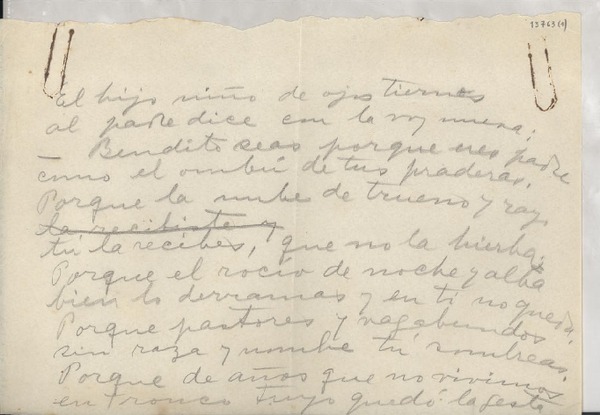 13763(1)
El hijo niño de ojos tiernos
al padre dice con la voz nueva:
— Bendito seas porque eres padre
como el ombú de tus praderas.
Porque la nube de trueno y rayo
la recibiste y
tú la recibes, que no la hierba;
Porque el rocío de noche y alba
bien lo derramas y en ti no queda,
Porque pastores y vagabundos
sin raza y nombre tú sombreas.
Porque de años que no vivimos
en tronco tuyo quedó la gesta